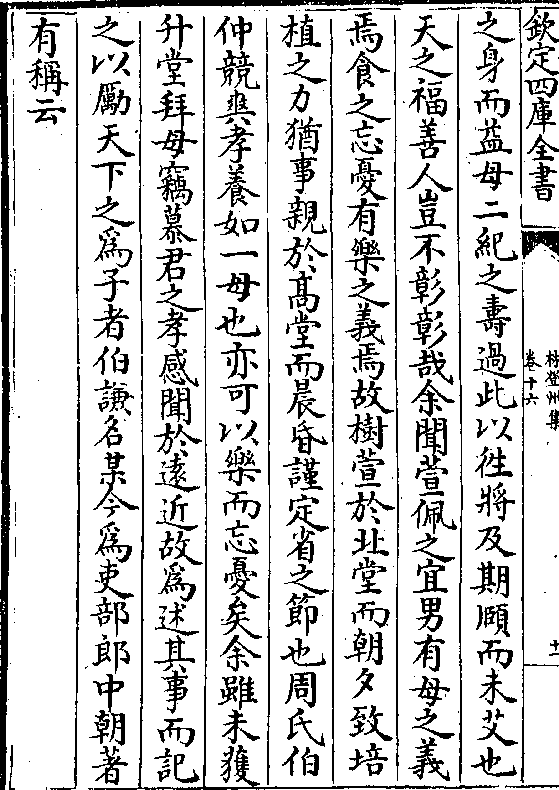 欽定四庫全書
林登州集
卷十六
十一
之身而益母二紀之壽過此以徃將及期頤而未艾也
天之福善人豈不彰彰哉余聞萱佩之宜男有母之義
焉食之忘憂有樂之義焉故樹萱於北堂而朝夕致培
植之力猶事親於髙堂而晨昏謹定省之節也周氏伯
仲競爽孝養如一母也亦可以樂而忘憂矣余雖未獲
升堂拜母竊慕君之孝感聞於逺近故為述其事而記
之以勵天下之為子者伯謙名某今為吏部郎中朝著
有稱云